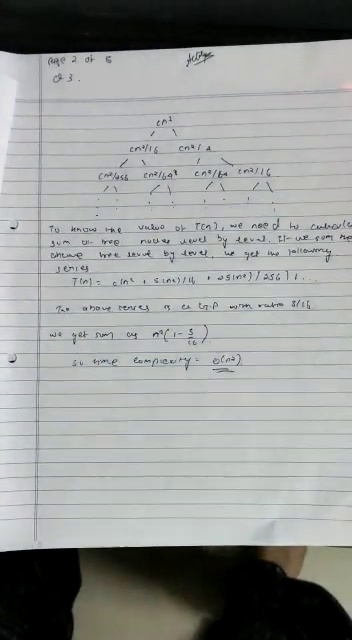 page 2 of 5
Q3.
cn²
cn²/16 cn²/4
cn²/256 cn²/64 cn²/64 cn²/16
To know the value of T(n), we need to calculate
sum of tree nodes level by level. If we sum the
above tree level by level, we get the following
series
T(n) = c(n² + 5(n²)/16 + 25(n²)/256) + ...
The above series is a G.P with ratio 5/16
we get sum as n²(1 - 5/16)
so time complexity = O(n²)